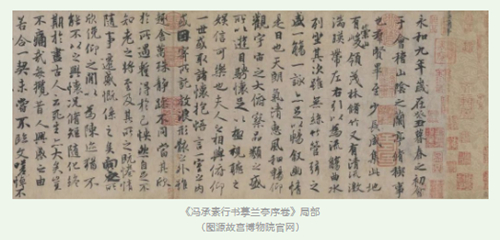 永和九年歲在癸丑暮春之初會
于會稽山陰之蘭亭脩稧事
也羣賢畢至少長咸集此地
有崇山峻領茂林脩竹又有清流激
湍暎帶左右引以為流觴曲水
列坐其次雖無絲竹管弦之
盛一觴一詠亦足以暢敘幽情
是日也天朗氣清惠風和暢仰
觀宇宙之大俯察品類之盛
所以遊目騁懷足以極視聽之
娛信可樂也夫人之相與俯仰
一世或取諸懷抱悟言一室之內
或因寄所託放浪形骸之外雖
趣舍萬殊靜躁不同當其欣
於所遇蹔得於己快然自足不
知老之將至及其所之既惓情
隨事遷感慨係之矣向之所
欣俛仰之閒以為陳迹猶不
能不以之興懷況脩短隨化終
期於盡古人云死生亦大矣豈
不痛哉每攬昔人興感之由
若合一契未嘗不臨文嗟悼不
《冯承素行书摹兰亭序卷》局部
（图源故宫博物院官网）